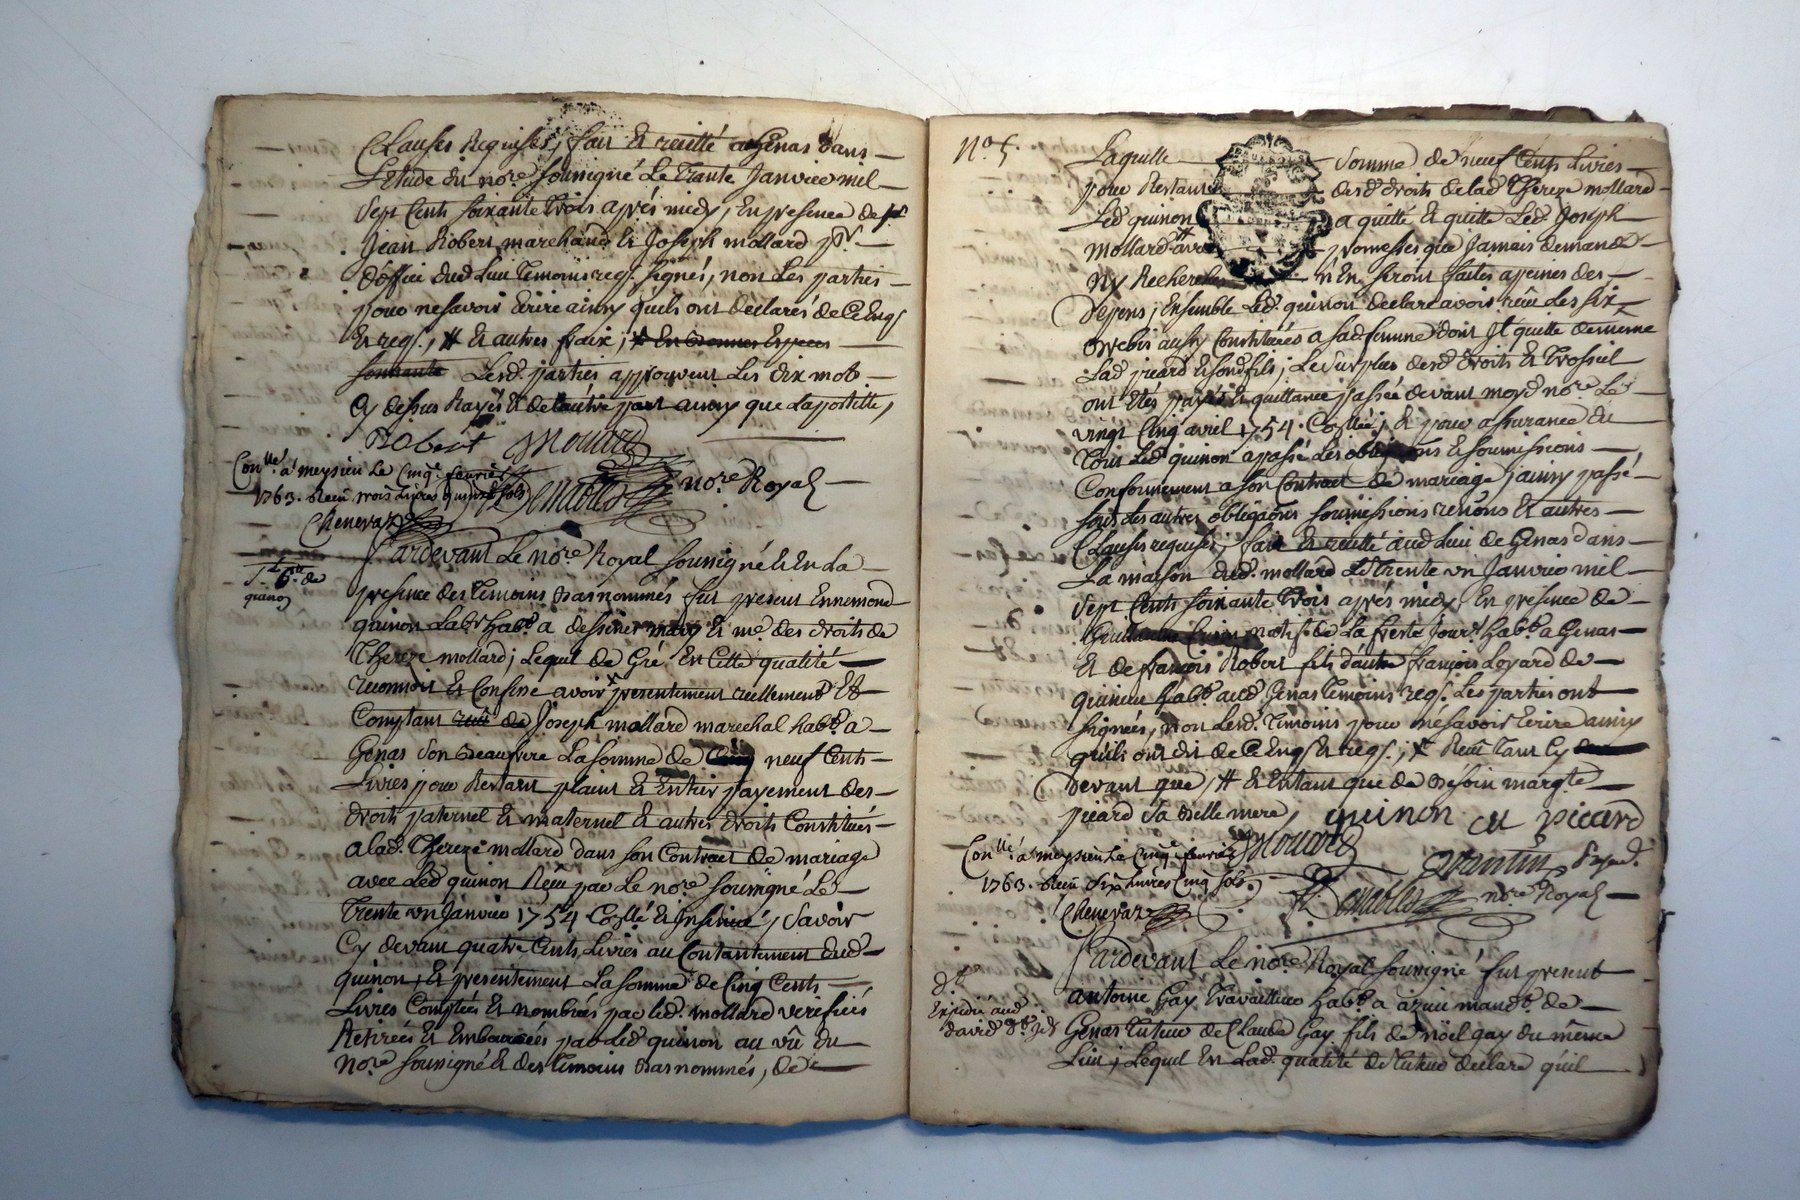 Clauses Requises, fait et recitté a Genas dans
L'etude du no.re soussigné Le Trante Janvier mil
Sept Cents soixante Trois aprés midy, En presence de
Jean Robert marchand et Joseph mollard
d'office dud. Lieu temoins req.s signés, non Les parties
pour ne savoir Ecrire ainsy qu'ils ont declarés de ce Enq.s
et req.s, # et autres fraix,
Lesd. parties approuvent Les dix mots
cy dessus Rayés et de l'autre part ainsy que L'apostille,
Robert Mollard
no.re Royal
Con.llé a meysieu Le Cinq.e fevrier
1763. Reçu trois Livres quinze sols
Chenevaz
Pardevant Le no.re Royal soussigné et En La
presence des temoins Bas nommés fut present Ennemond
quinon Lab.r hab.t a dessiner mary et m.e des droits de
Thereze mollard, Lequel de Gré En Cette qualité
reconnoit et Confesse avoir presentement reellement et
Comptant de Joseph mollard marechal hab.t a
Genas son Beaufrere La somme de neuf Cents
Livres pour Restant plaint et Entier payement des
droits paternel et maternel et autres droits Constitués
a lad. Thereze mollard dans son Contract de mariage
avec Led. quinon Reçu par Le no.re soussigné Le
Trente un Janvier 1754 Co.llé et Insinué, Savoir
Cy devant quatre Cents Livres au Contantement dud.
quinon, et presentement La somme de Cinq Cents
Livres Comptées et nombrées par led. mollard verifiées
Retirées et Emboursées par Led. quinon au vû du
no.re soussigné et des temoins Bas nommés, de
No. 5.
Laquelle somme de neuf Cents Livres
pour Restant desd. droits de lad. Thereze mollard
Led. quinon a quitté et quitte Led. Joseph
mollard avec promesses que Jamais demande
ny Recherches n'En seront faites a peines des
Depens, Ensemble Led. quinon declare avoir reçu Les six
brebis aussy Constituées a sad. femme dont Il quitte de meme
Lad. picard et sond. fils, Le surplus desd. droits et Trossel
ont etés payés et quittancé passée devant moyd. no.re Le
vingt Cinq avril 1754. Co.llée, et pour assurance du
tous Led. quinon a passé Les obligations et soumissions
Conformement a son Contract de mariage, ainsy passé
sous les autres obligations soumissions renons et autres
Clauses requises, fait et recitté aud. Lieu de Genas dans
La maison dud. mollard Le trente un Janvier mil
Sept Cents soixante Trois aprés midy, En presence de
natif de La freste Jour.r hab.t a Genas
et de françois Robert fils d'autre françois Loyard de
hab.t aud. Genas temoins req.s Les parties ont
signées, non Lesd. temoins pour ne savoir Ecrire ainsy
qu'ils ont dit de ce Enq.s et req.s, # Reçu tant Cy
devant que, # et Entant que de Besoin marg.te
picard sa Belle mere, quinon
picard
Mollard
no.re Royal
Con.llé a meysieu Le Cinq.e fevrier
1763. Reçu Six Livres Cinq sols.
Chenevaz
Pardevant Le no.re Royal soussigné fut present
antoine Gay travailleur hab.t a azieu mand.t de
Genas tuteur de Claude Gay fils de noël gay du même
Lieu, Lequel En Lad. qualité de tuteur declare qu'il
Expedié aud.